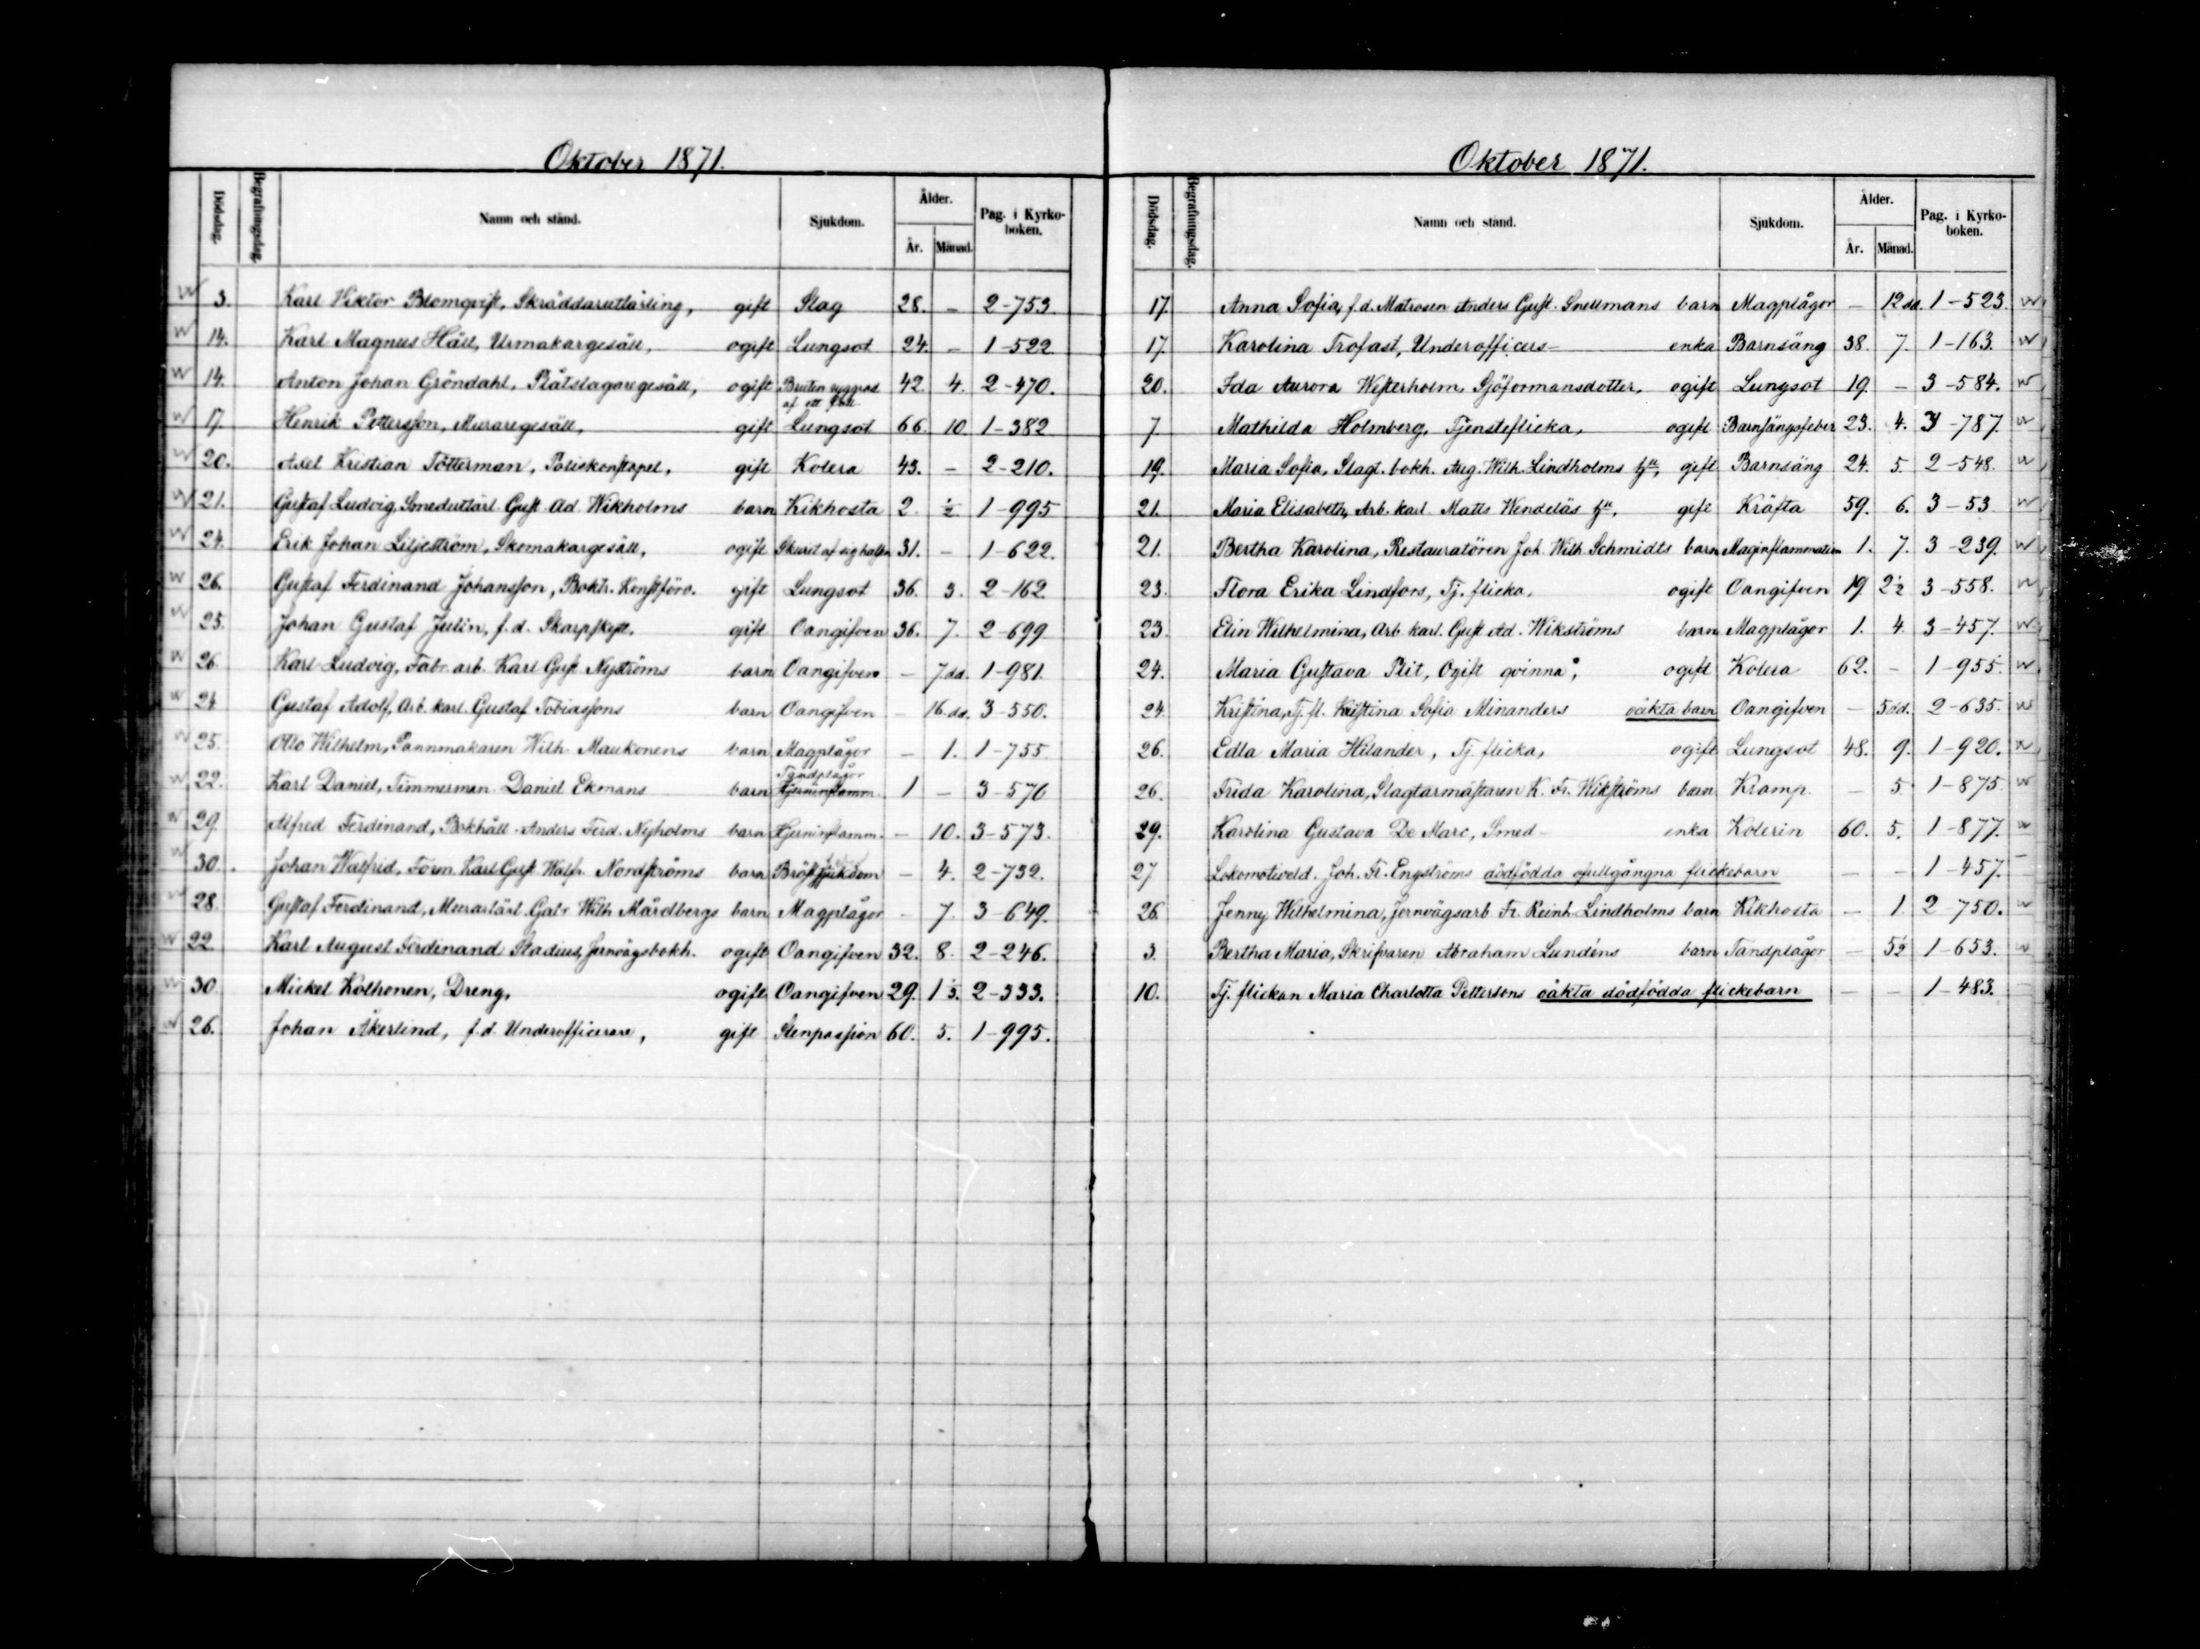 Oktober 1871.
Dödsdag. Begrafningsdag. Namn och stånd. Sjukdom. Ålder. År. Månad. Pag. i Kyrko-boken.
3. Karl Viktor Blomqvist, Skräddarutlärling, gift Slag 28. — 2-753.
14. Karl Magnus Häll, Urmakargesäll, ogift Lungsot 24. — 1-522
14. Anton Johan Gröndahl, Plåtslagaregesäll, ogift Bruten ryggrad af ett fall 42. 4. 2-470.
17. Henrik Pettersson, Muraregesäll, gift Lungsot 66. 10. 1-382
20. Axel Kristian Tötterman, Poliskonstapel, gift Kolera 43. — 2-210.
21. Gustaf Ludvig, Smedutlärl. Gust. Ad. Wikholms barn Kikhosta 2. ½. 1-995
24. Erik Johan Liljeström, Skomakargesäll, ogift Skurit af sig halsen 31. — 1-622.
26. Gustaf Ferdinand Johansson, Boktr. Konstförv. gift Lungsot 36. 3. 2-162
25. Johan Gustaf Julin, f.d. Skarpskytt, gift Oangifven 36. 7. 2-699
26. Karl Ludvig, Fabr. arb. Karl Gust. Nyströms barn Oangifven — 7 dd. 1-981.
24 Gustaf Adolf, Arb. karl. Gustaf Tobiassons barn Oangifven — 16. dd. 3-550.
25. Otto Wilhelm, Pannmakaren Wilh. Maukonens barn Magplågor — 1. 1-755
22. Karl Daniel, Timmerman Daniel Ekmans barn Tandplågor Hjerninflamm. 1 — 3-570
29. Alfred Ferdinand, Bokhåll. Anders Ferd. Nyholms barn Hjerninflamm. — 10. 3-573.
30. Johan Walfrid, Karl Gust. Walfr. Nordströms barn Bröstsjukdom — 4. 2-732.
28. Gustaf Ferdinand, Murarlärl. Gabr. Wilh. Mårdbergs barn Magplågor — 7. 3-649.
22. Karl August Ferdinand Stadius, Jernvägsbokh. ogift Oangifven 32. 8. 2-246.
30. Mickel Kolhonen, Dreng, ogift Oangifven 29. 1 ⅓. 2-333.
26. Johan Åkerlind, f.d. Underofficerare, gift Stenpassion 60. 5. 1-995.
Oktober 1871.
Dödsdag. Begrafningsdag. Namn och stånd. Sjukdom. Ålder. År. Månad. Pag. i Kyrko-boken.
17. Anna Sofia, f.d. Matrosen Anders Gust. Snellmans barn Magplågor — 12 dd. 1-523.
17. Karolina Trofast, Underofficers- enka Barnsäng 38. 7. 1-163.
20. Ida Aurora Westerholm, Sjöformansdotter, ogift Lungsot 19. — 3-584.
7. Mathilda Holmberg, Tjensteflicka, ogift Barnsängsfeber 23. 4. 3-787.
19. Maria Sofia, Slagt. bokh. Aug. Wilh. Lindholms hu, gift Barnsäng 24. 5. 2-548.
21. Maria Elisabeth, Arb. karl. Matts Wendeläs hu, gift Kräfta 59. 6. 3-53
21. Bertha Karolina, Restauratören Joh. Wilh. Schmidts barn Maginflammation 1. 7. 3-239.
23. Flora Erika Lindfors, Tj. flicka, ogift Oangifven 19. 2½ 3-558.
23. Elin Wilhelmina, Arb. karl. Gust. Ad. Wikströms barn Magplågor 1. 4 3-457.
24. Maria Gustava Plit, Ogift qvinna, ogift Kolera 62. — 1-955.
24. Kristina, Tj. fl. Kristina Sofia Minanders oäkta barn Oangifven — 5 dd. 2-635.
26. Edla Maria Hilander, Tj. flicka, ogift Lungsot 48. 9. 1-920.
26. Frida Karolina, Slagtarmästaren K. Fr. Wikströms barn Kramp. — 5. 1-875.
29. Karolina Gustava De Marc, Smed- enka Kolerin 60. 5. 1-877.
27 Lokomotiveld. Joh. Fr. Engströms dödfödda ofullgångna flickebarn — — 1-457.
26. Jenny Wilhelmina, Jernvägsarb. Fr. Reinh. Lindholms barn Kikhosta — 1. 2-750.
3. Bertha Maria, Skrifvaren Abraham Lundéns barn Tandplågor — 5½ 1-653.
10. Tj. flickan Maria Charlotta Pettersons oäkta dödfödda flickebarn — — 1-483.